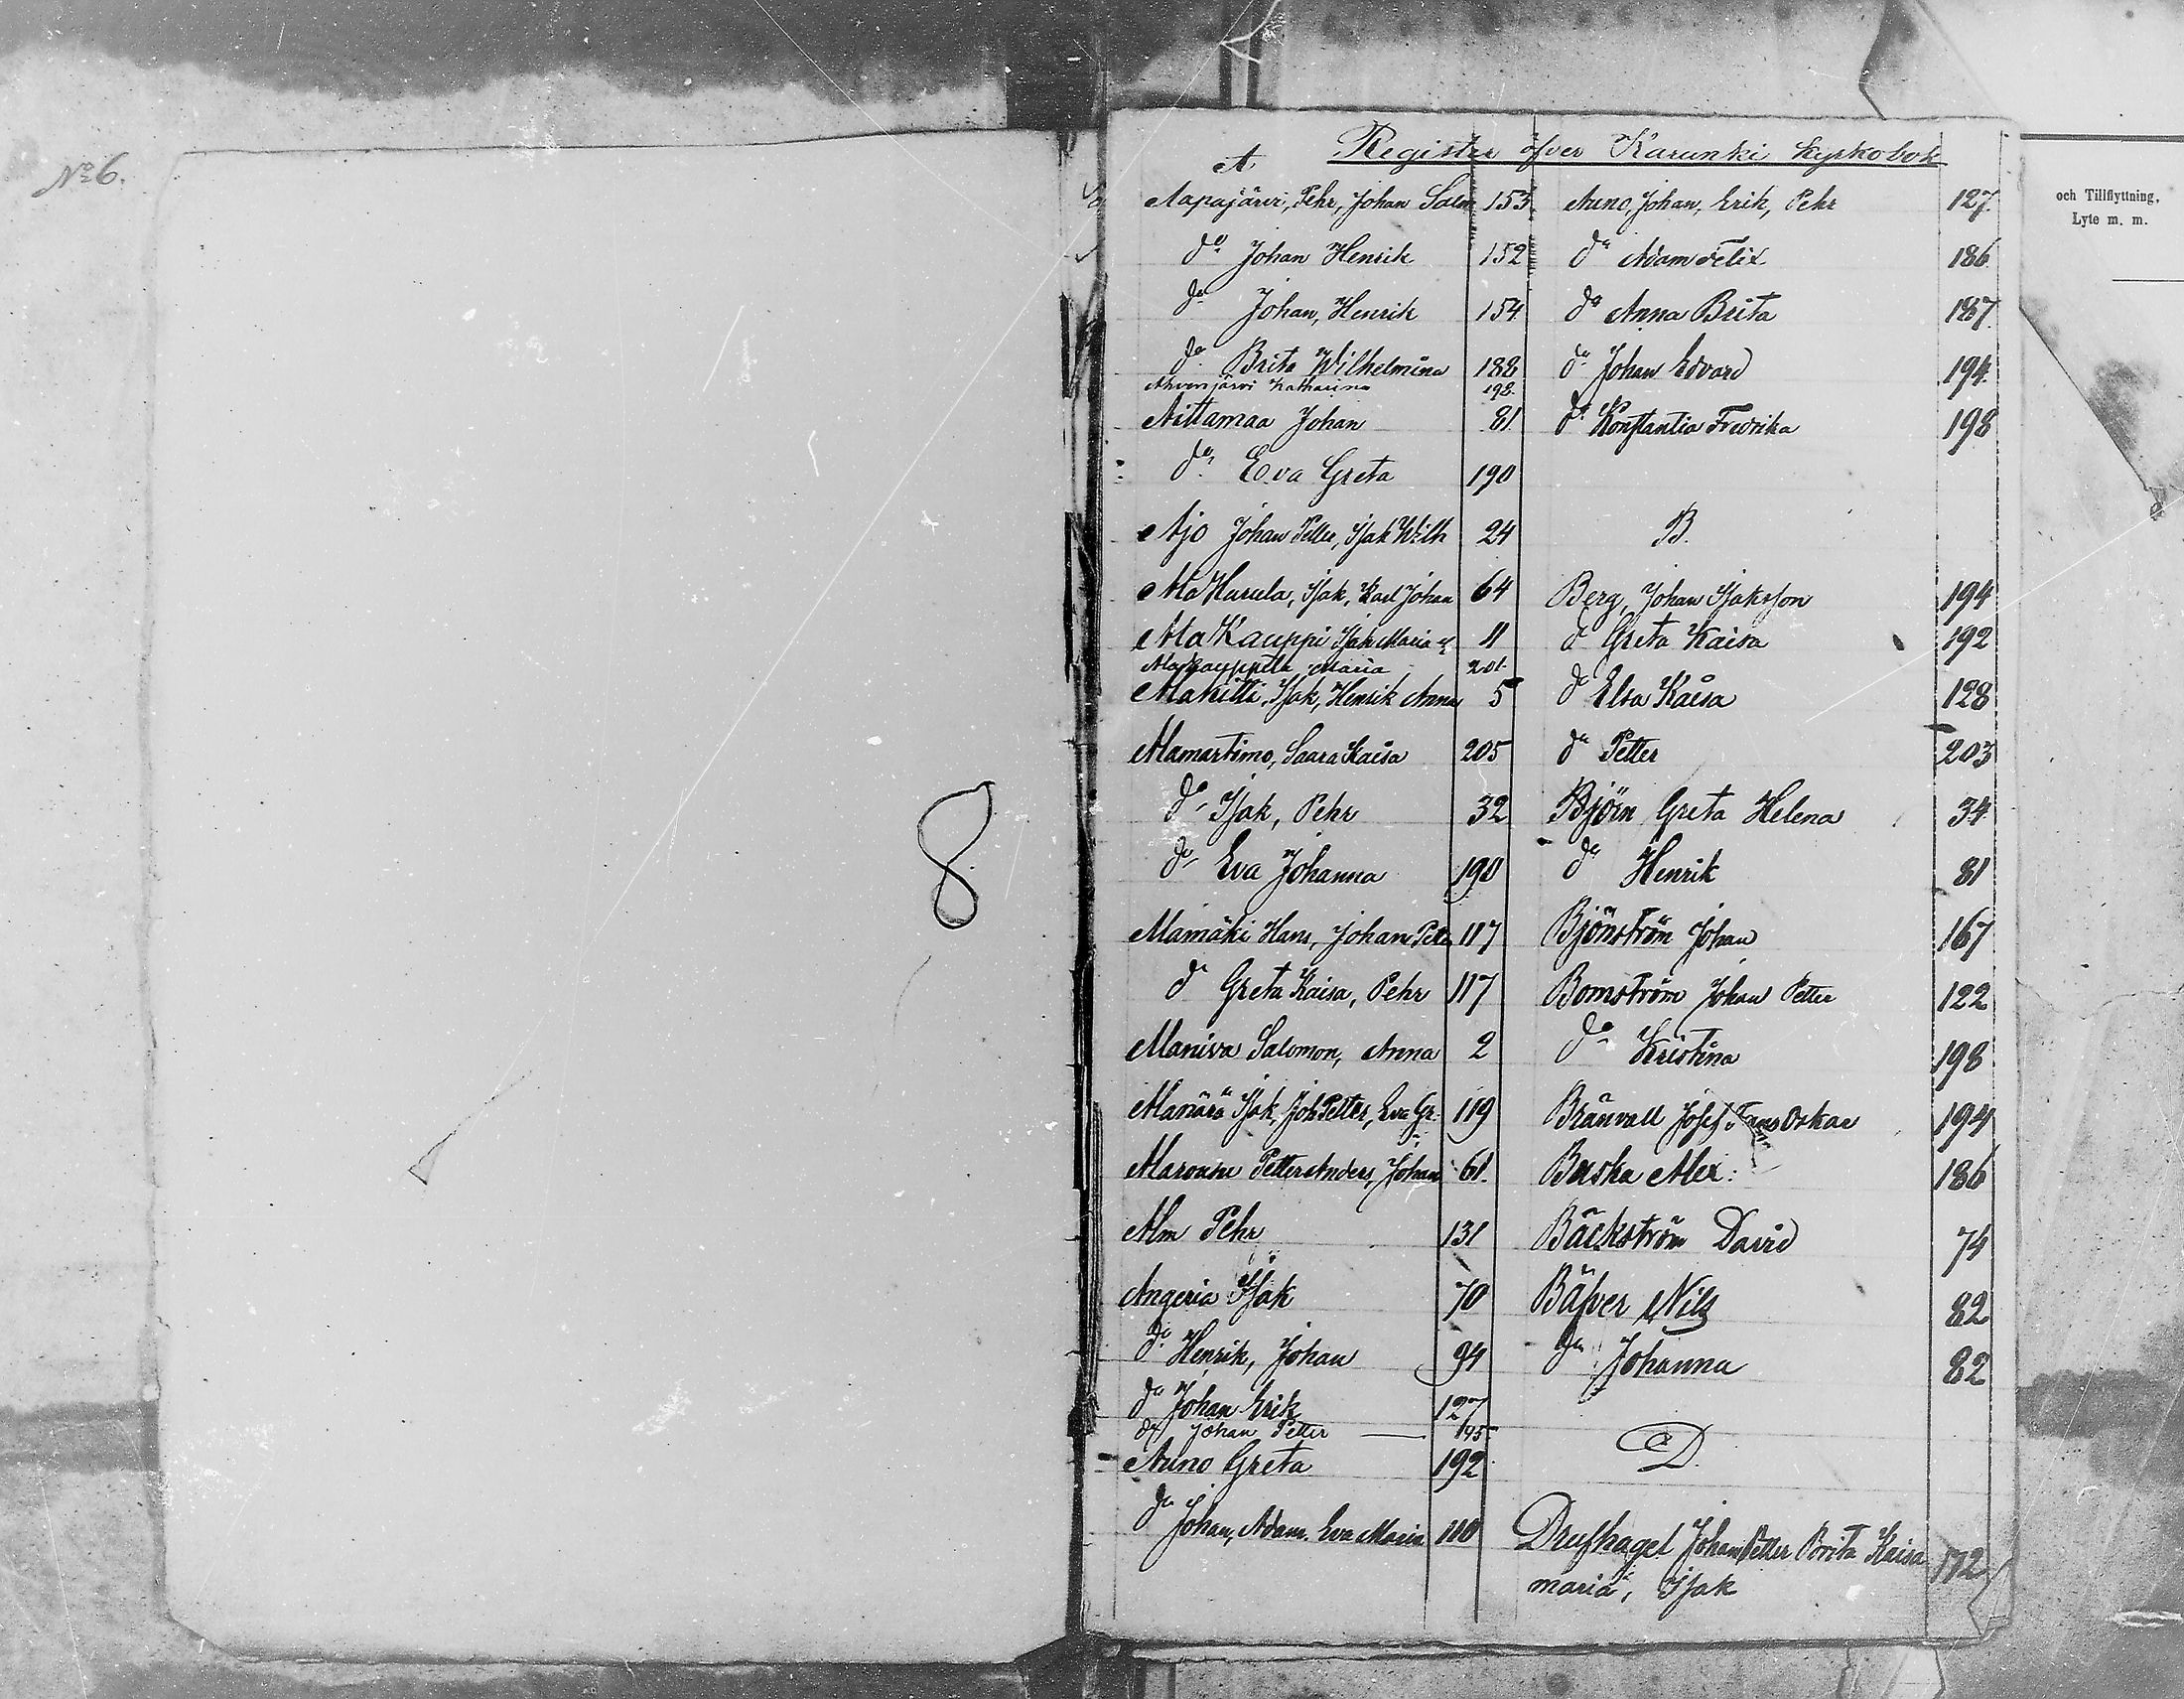 No 6.
8
Register öfver Karunki kyrkobok
A
Aapajärvi, Pehr, Johan Salm 153
do Johan Henrik 152
do Johan, Henrik 154
do Brita Wilhelmina 188
Ahvenjärvi Katharina 192
Aittamaa Johan 81
do Eva Greta 190
Ajo Johan Petter, Isak Wilh 24
Ala Harula, Isak, Karl Johan 64
Ala Kauppi Isak Maria 11
Alakauppila Maria 201
Alakitti, Isak, Henrik Anna 5
Alamartimo, Saara Kaisa 205
do Isak, Pehr 32
do Eva Johanna 190
Alamäki Hans, Johan Petter 117
do Greta Kaisa, Pehr 117
Alaniva Salomon, Anna 2
Alanärä Isak, Joh Petter, Eva Gr. 119
Petter Anders, Johan 61
Alm Pehr 131
Angeria Isak 70
do Henrik, Johan 94
do Johan Erik 127
do Johan Petter 195
Auno Greta 192
do Johan, Adam. Eva Maria 110
Auno, Johan, Erik, Pehr 127
do Adam Felix 186
do Anna Brita 187
do Johan Edvard 194
do Konstantia Fredrika 198
B.
Berg, Johan Isaksson 194
do Greta Kaisa 192
do Elsa Kaisa 128
do Petter 203
Björn Greta Helena 34
do Henrik 81
Björnström Johan 167
Bomström Johan Petter 122
do Kristina 198
Brännvall Josef Frans Oskar 194
Buska Alex: 186
Bäckström David 74
Bäfver Nils 82
do Johanna 82
D.
Drufhagel Johan Petter Brita Kaisa
maria, Isak 172
och Tillflyttning,
Lyte m. m.